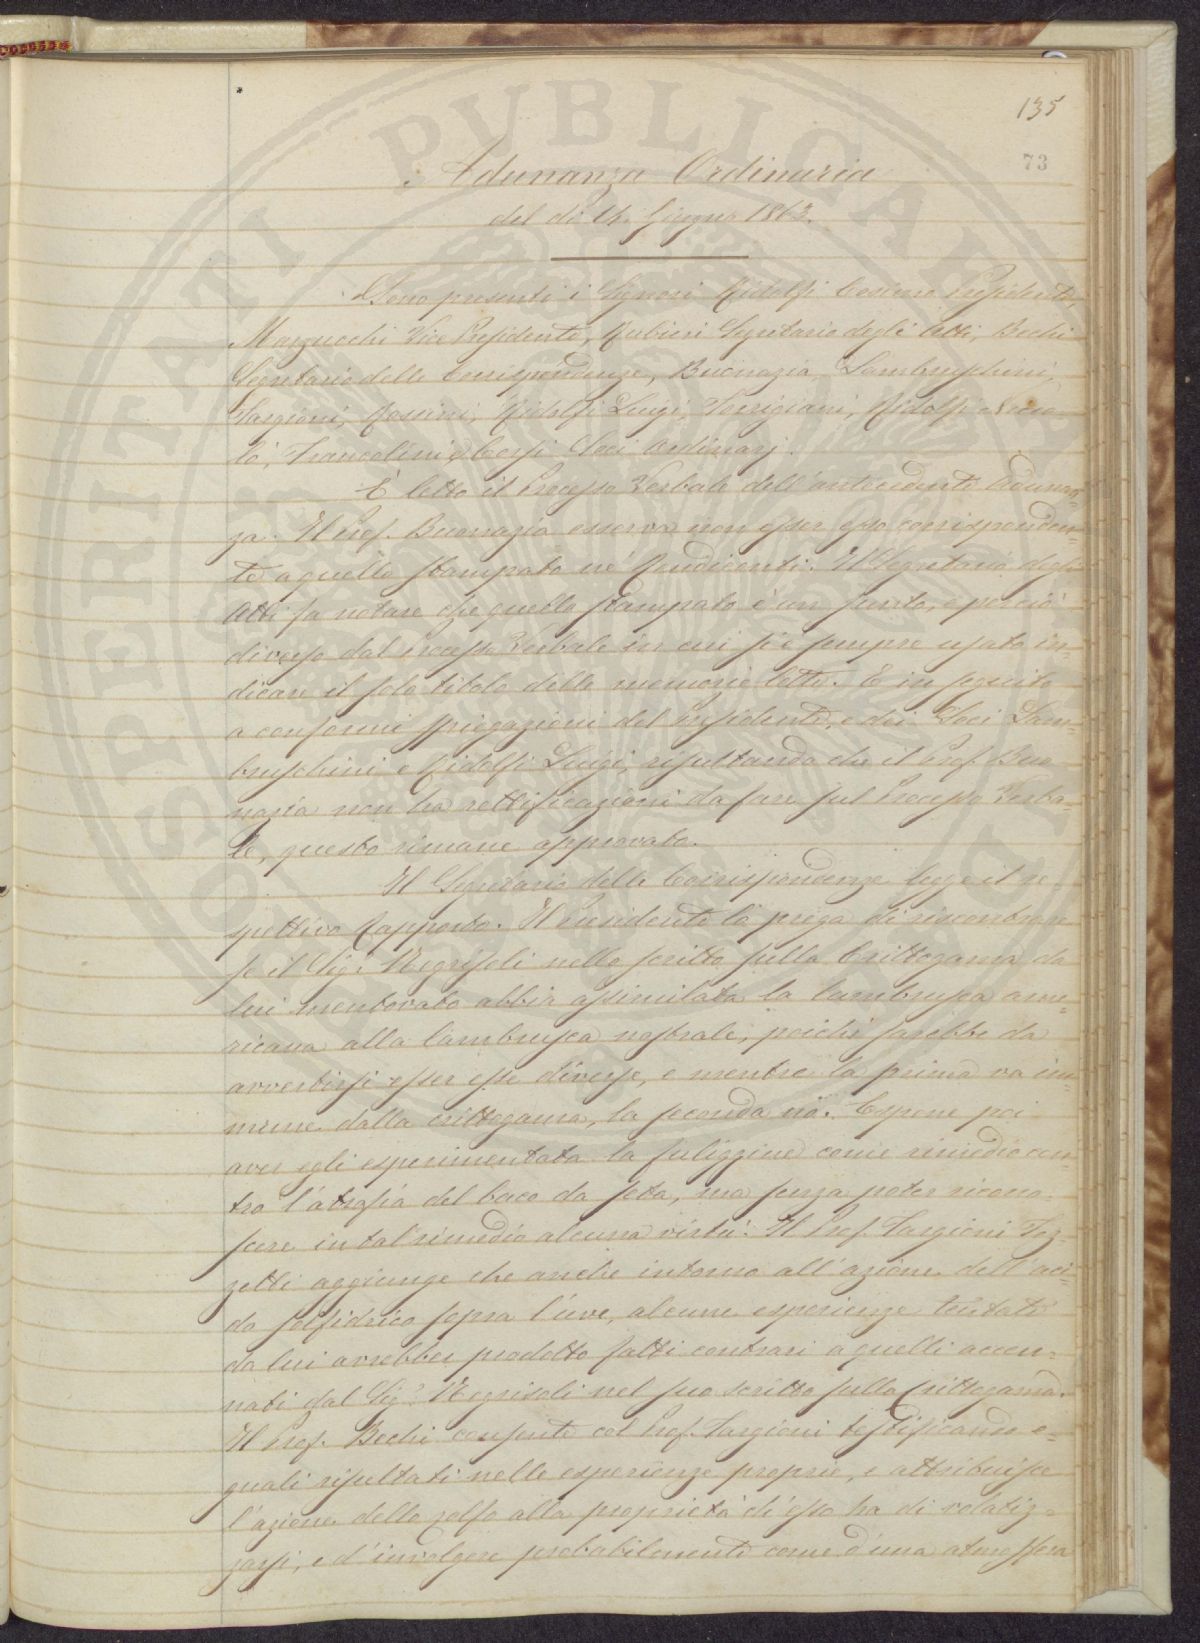 135
73
Adunanza Ordinaria
del dì 14. Giugno 1863.
Sono presenti i Signori Ridolfi Cosimo Presidente,
Marzucchi Vice Presidente, Rubieri Segretario degli Atti, Bechi
Segretario delle Corrispondenze, Buonazia, Lambruschini,
Targioni, Rossini, Ridolfi Luigi, Torrigiani, Ridolfi Nicco-
lò, Francolini, e Corsi Soci Ordinarj.
È letto il Processo Verbale dell'antecedente Adunan-
za. Il Prof. Buonazia osserva non esser esso corrisponden-
te a quello stampato ne' Rendiconti. Il Segretario degli
Atti fa notare che quello stampato è un sunto, e perciò
diverso dal Processo Verbale in cui si è sempre usato in-
dicare il solo titolo delle memorie lette. E in seguito
a conformi spiegazioni del Presidente, e dei Soci Lam-
bruschini e Ridolfi Luigi, risultando che il Prof. Buo
nazia non ha rettificazioni da fare sul Processo Verba-
le, questo rimane approvato.
Il Segretario delle Corrispondenze legge il re-
spettivo Rapporto. Il Presidente lo prega di riscontrare
se il Sig.r Negrisoli nello scritto sulla Crittogama da
lui mentovato abbia assimilata la lambrusca ame-
ricana alla lambrusca nostrale, poichè sarebbe da
avvertirsi esser esse diverse, e mentre la prima va im-
mune dalla crittogama, la seconda nò. Espone poi
aver egli esperimentata la fuliggine come rimedio con-
tro l'atrofia del baco da seta, ma senza poter ricono-
scere in tal rimedio alcuna virtù. Il Prof. Targioni Toz-
zetti aggiunge che anche intorno all'azione dell'aci-
do solfidrico sopra l'uve, alcune esperienze tentate
da lui avrebber prodotto fatti contrari a quelli accen-
nati dal Sig.r Negrisoli nel suo scritto sulla Crittogama.
Il Prof. Bechi consente col Prof. Targioni testificando e-
guali risultati nelle esperienze proprie, e attribuisce
l'azione dello zolfo alla proprietà ch'esso ha di volatiz-
zarsi, e d'involgere probabilmente come d'una atmosfera
PROSPERITATI PUBLICAE